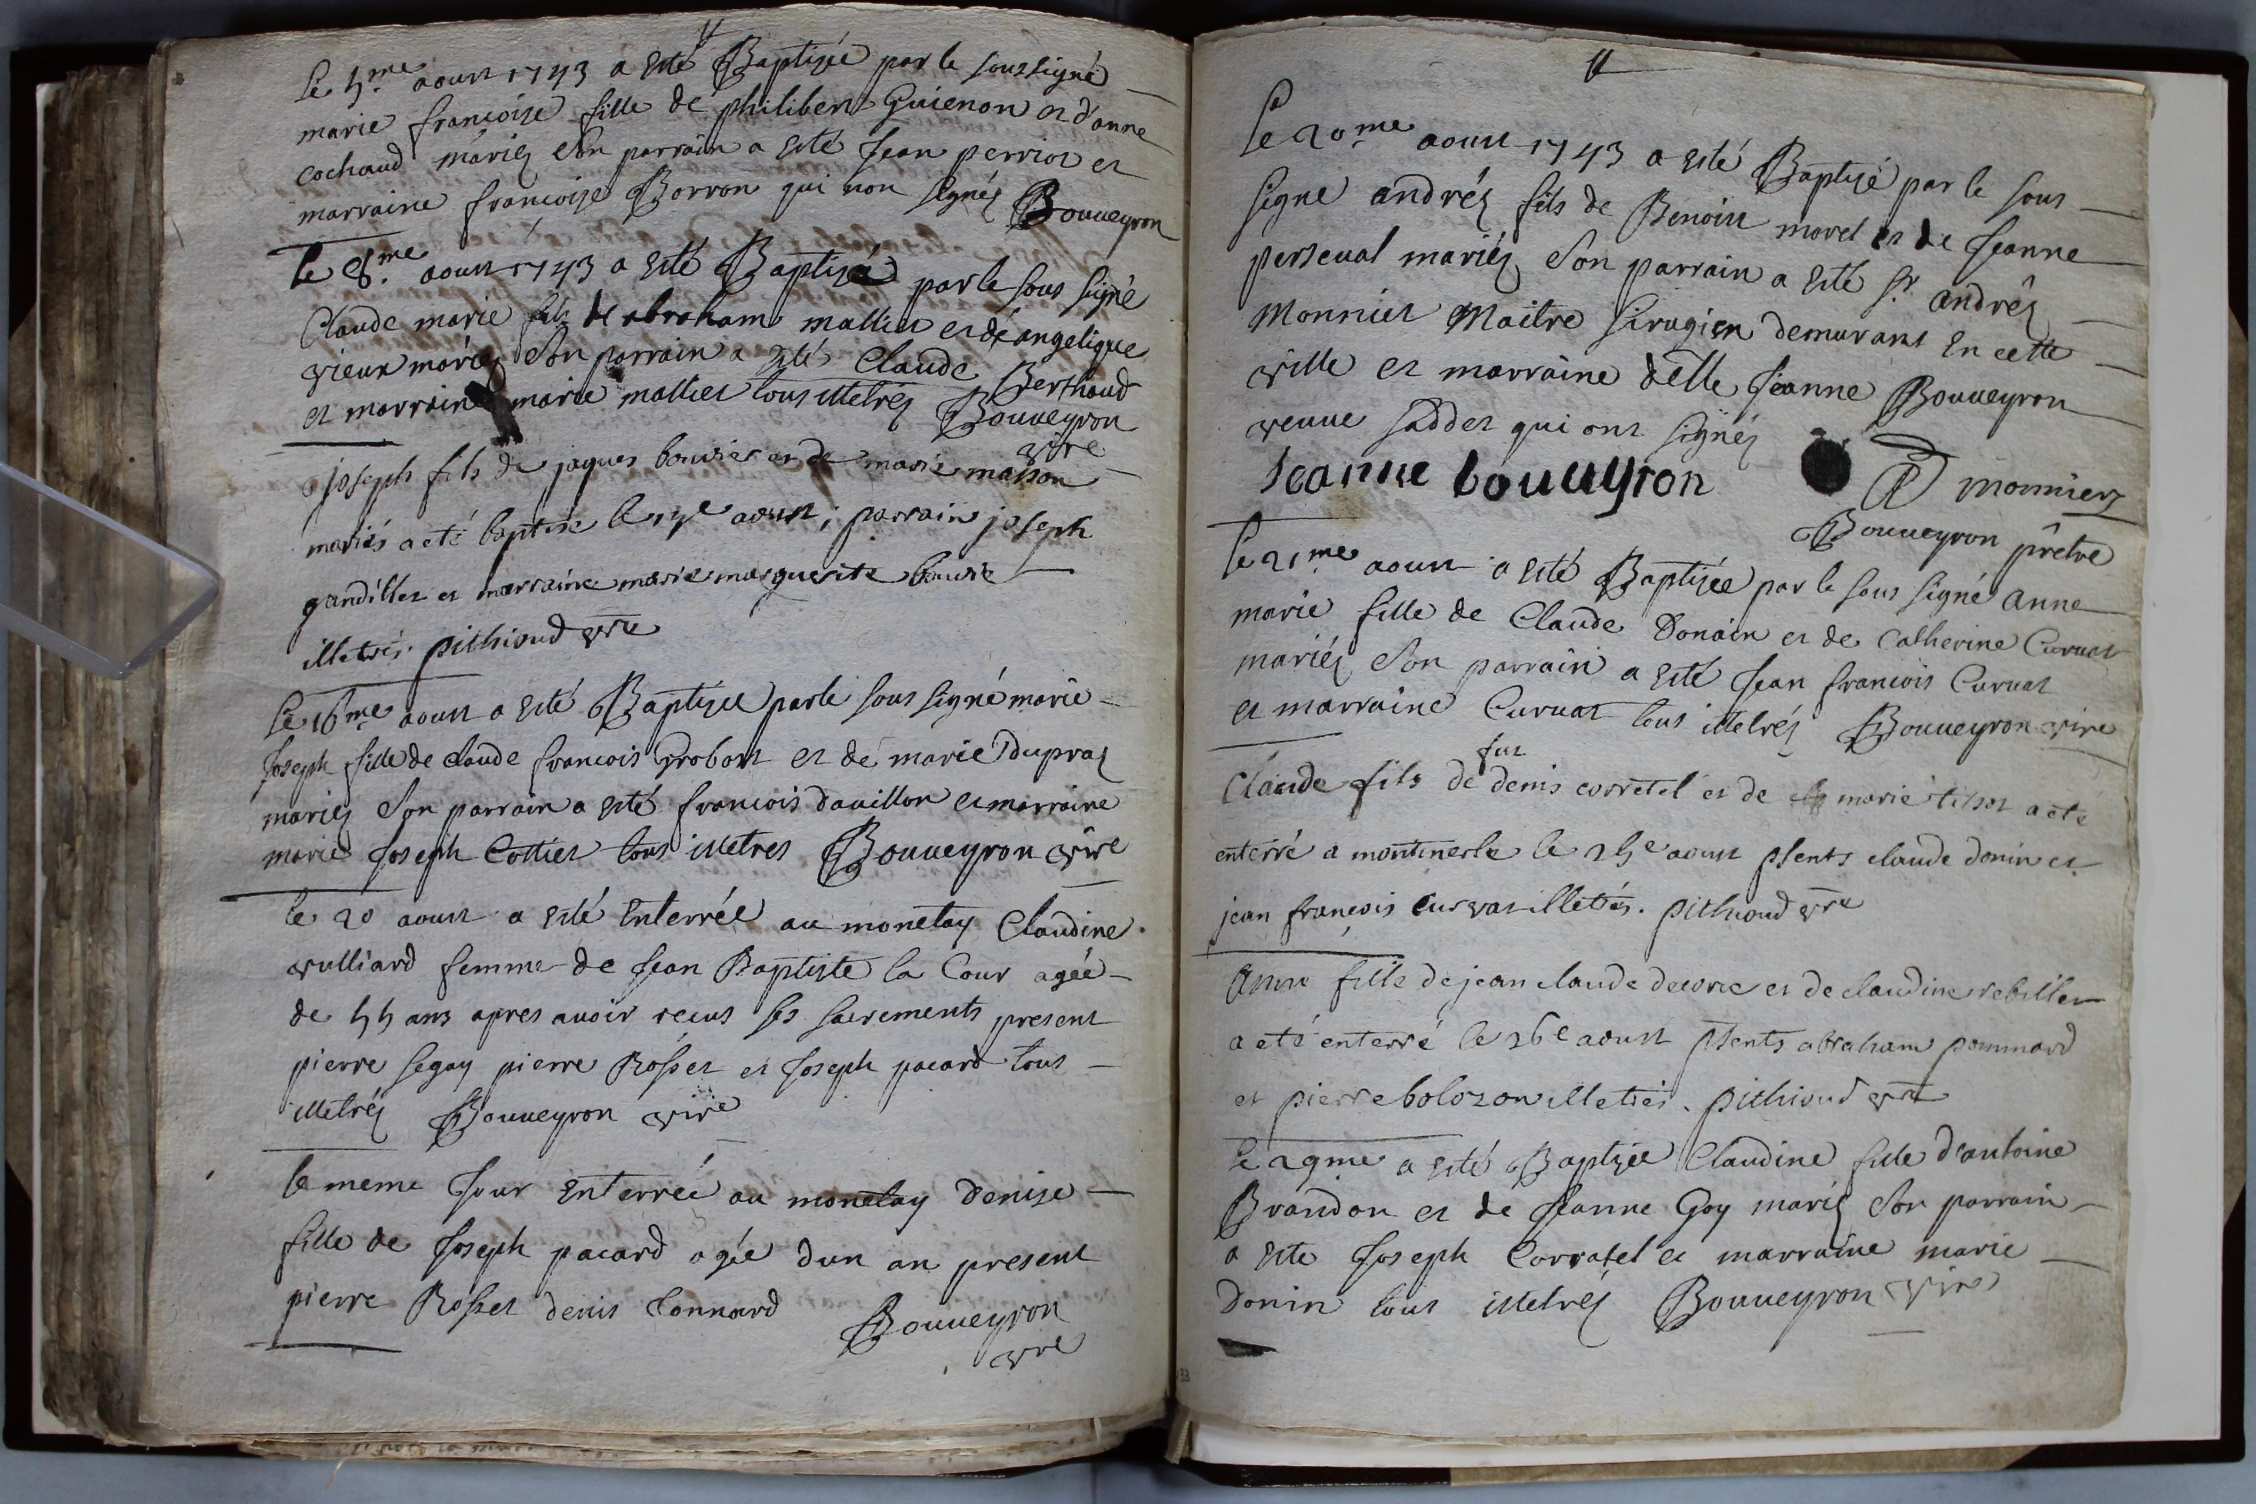 Le 5.me aoust 1743 a esté Baptisée par le soussigné
marie francoise fille de philibert Guienon et d'anne
cochaud mariez son parrain a esté Jean perrier et
marraine francoise Borron qui non signéz Bouueyron
Le 8.me aoust 1743 a esté Baptisé par le sous signé
Claude marie fils de abraham mallier et de angelique
vieux mariez son parrain a esté Claude Berthaud
et marraine marie mallier tous illetréz Bouueyron
vire
joseph fils de jaques bouvier et de marie maison
mariés a été baptise le aoust; parrain joseph
gandillet et marraine marie marguerite bouvie
illetrés. pithioud vre
Le 16me aoust a esté Baptisée par le sous signé marie
Joseph fille de claude francois probost et de marie Dupraz
mariez son parrain a esté francois dauillon et marraine
marie Joseph Cottier tous illetres Bouueyron vire
le 20 aoust a esté Enterrée au monetay Claudine
vulliard femme de Jean Baptiste la Cour agée
de 55 ans apres auoir recus ses sacrements present
pierre segay pierre Rosset et Joseph pacard tous
illetréz Bouueyron vire
le meme Jour Enterrée au monetay denise
fille de Joseph pacard agée dun an present
pierre Rosset denis Connard Bouueyron
vre
Le 20.me aoust 1743 a esté Baptisé par le sous
signe andréz fils de Benoist morel et de Jeanne
perseual mariéz son parrain a esté sr andréz
Monnier Maitre sirugien demurant En cette
ville et marraine delle Jeanne Bouueyron
veuue saddet qui ont signéz
Jeanne bouueyron
monnier
Bouueyron prêtre
le 21.me aoust a esté Baptisée par le sous signé anne
marie fille de Claude Donain et de Catherine Curuat
mariéz son parrain a esté Jean francois Curuat
et marraine Curuat tous illetréz Bouueyron vire
fut
Claude fils de denis corretel et de marie tissot a ete
enterré a montmerle le 25e aoust psents claude donin et
jean françois curvat illetrés. pithioud vre
Anne fille de jean claude decore et de claudine rebillet
a eté enterré le 26e aoust psents abraham pommard
et pierre bolozon illetrés. pithioud vre
le 29me a esté Baptisée Claudine fille d'antoine
Brandon et de Jeanne Goy mariéz son parrain
a este Joseph Corratel et marraine marie
donin tous illetréz Bouueyron vire